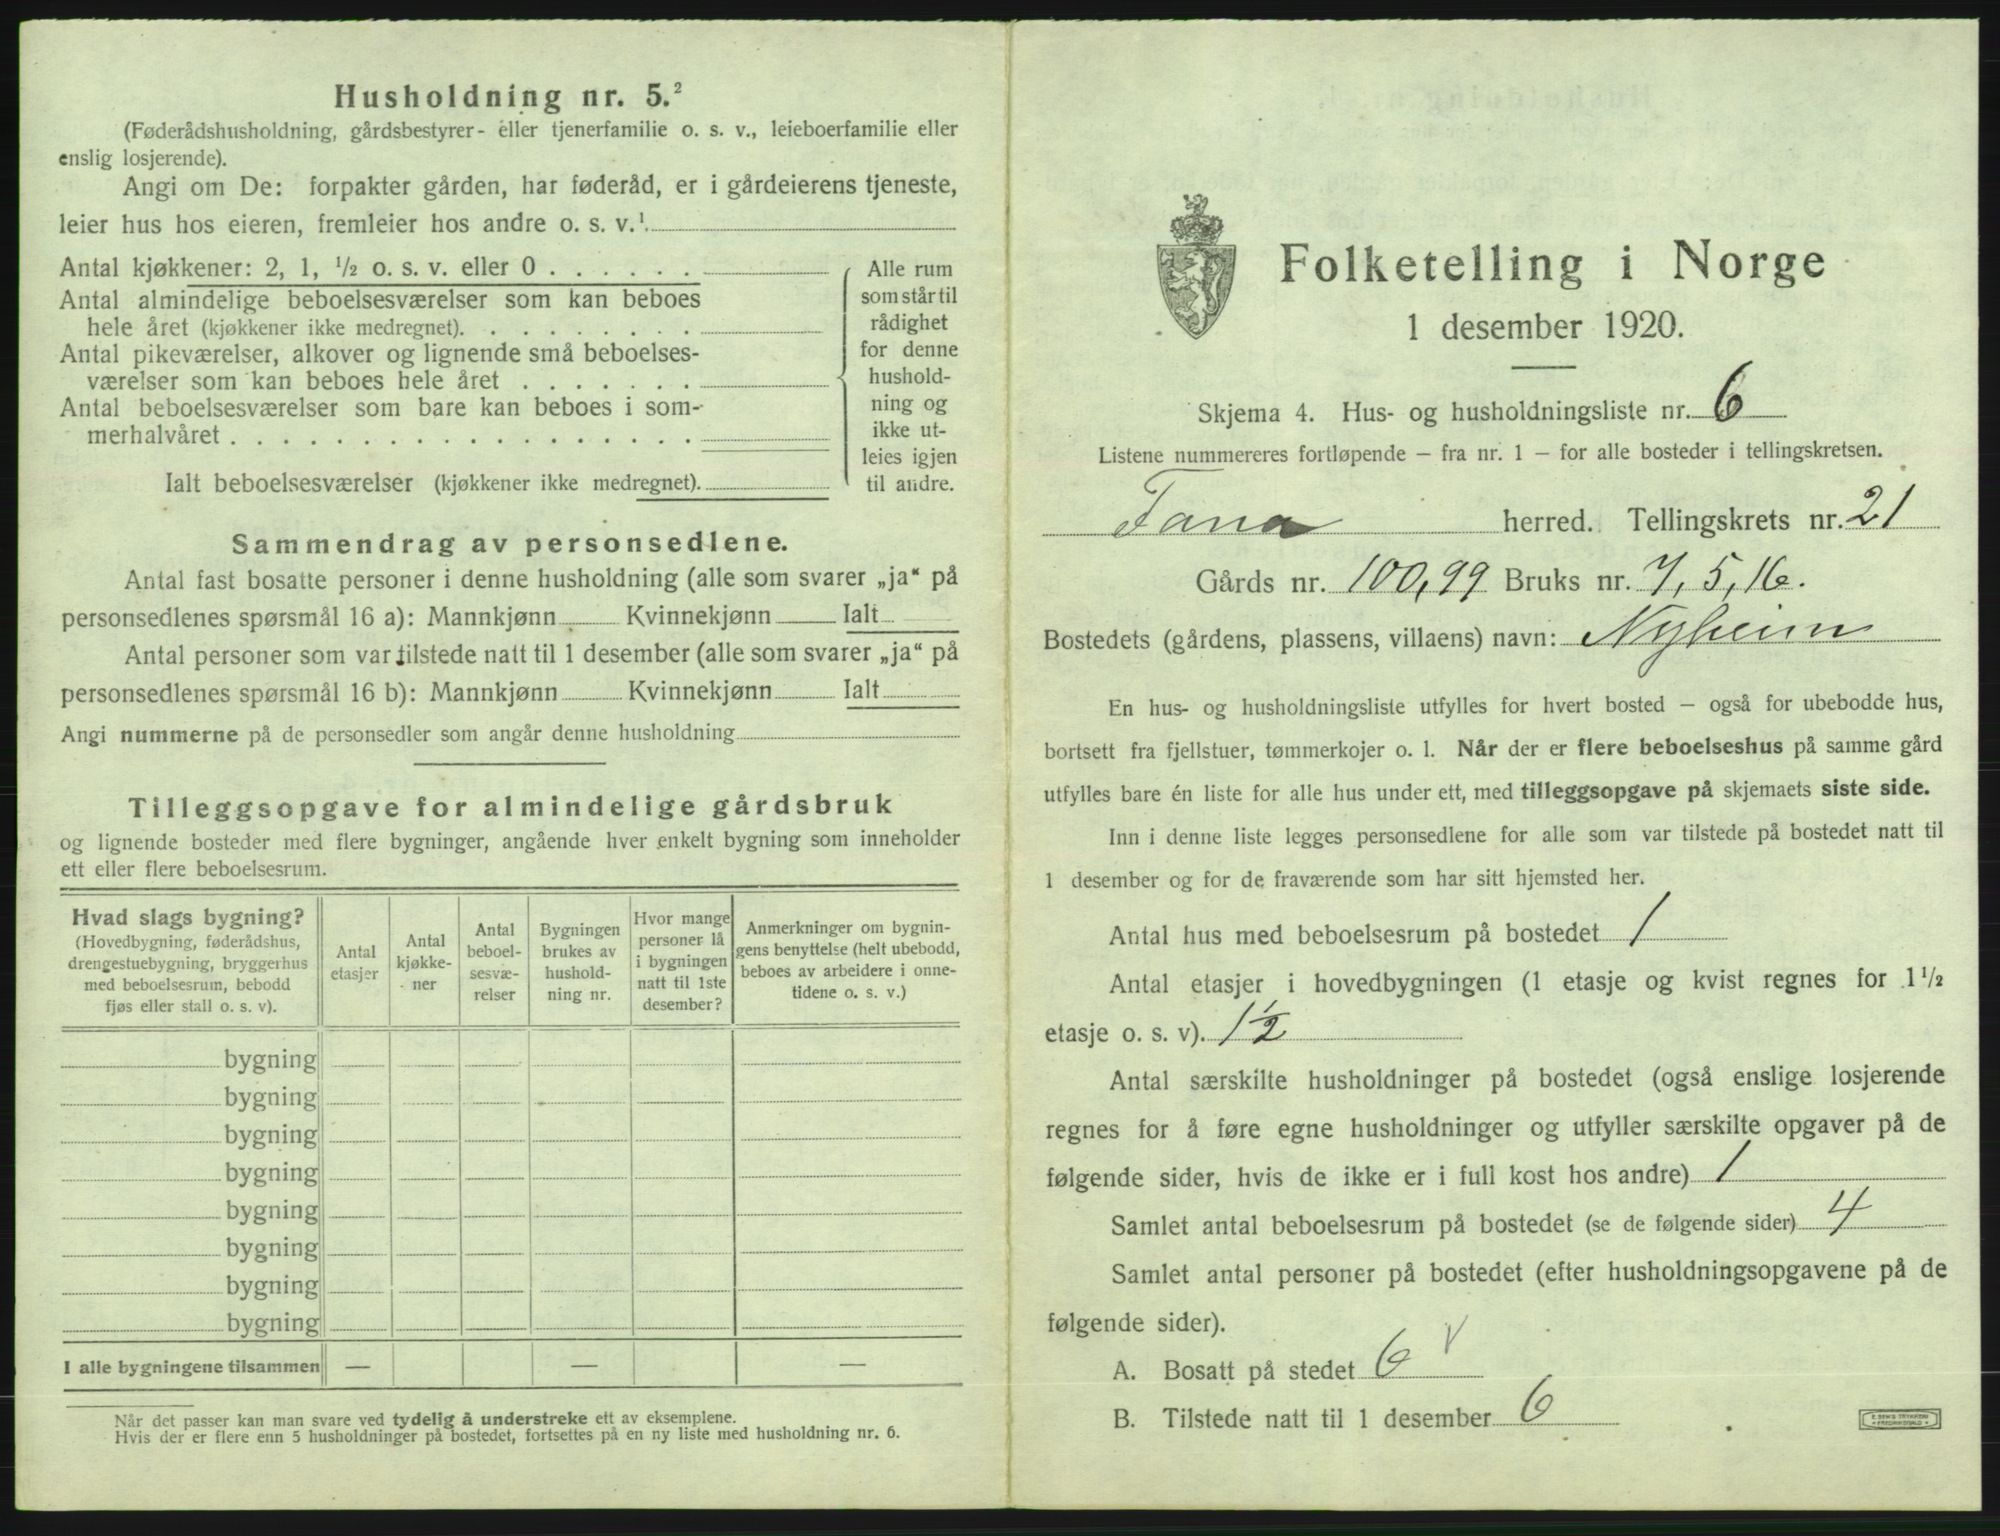 Husholdning nr. 5.²
(Føderådshusholdning, gårdsbestyrer- eller tjenerfamilie o. s. v., leieboerfamilie eller
enslig losjerende).
Angi om De: forpakter gården, har føderåd, er i gårdeierens tjeneste,
leier hus hos eieren, fremleier hos andre o. s. v.¹.
Antal kjøkkener: 2, 1, ½ o. s. v. eller 0 . . . . . .
Antal almindelige beboelsesværelser som kan beboes
hele året (kjøkkener ikke medregnet). . . . . . . . .
Antal pikeværelser, alkover og lignende små beboelses-
værelser som kan beboes hele året . . . . . . .
Antal beboelsesværelser som bare kan beboes i som-
merhalvåret . . . . . . . . . . . . . . . . . . .
Ialt beboelsesværelser (kjøkkener ikke medregnet).
Alle rum
som står til
rådighet
for denne
hushold-
ning og
ikke ut-
leies igjen
til andre.
Sammendrag av personsedlene.
Antal fast bosatte personer i denne husholdning (alle som svarer „ja“ på
personsedlenes spørsmål 16 a): Mannkjønn Kvinnekjønn Ialt
Antal personer som var tilstede natt til 1 desember (alle som svarer „ja“ på
personsedlenes spørsmål 16 b): Mannkjønn Kvinnekjønn Ialt
Angi nummerne på de personsedler som angår denne husholdning
Tilleggsopgave for almindelige gårdsbruk
og lignende bosteder med flere bygninger, angående hver enkelt bygning som inneholder
ett eller flere beboelsesrum.
Hvad slags bygning?
(Hovedbygning, føderådshus,
drengestuebygning, bryggerhus
med beboelsesrum, bebodd
fjøs eller stall o. s. v).
Antal
etasjer
Antal
kjøkke-
ner
Antal
beboel-
sesvæ-
relser
Bygningen
brukes av
hushold-
ning nr.
Hvor mange
personer lå
i bygningen
natt til 1ste
desember?
Anmerkninger om bygnin-
gens benyttelse (helt ubebodd,
beboes av arbeidere i onne-
tidene o. s. v.)
bygning
bygning
bygning
bygning
bygning
bygning
bygning
bygning
I alle bygningene tilsammen — — —
Når det passer kan man svare ved tydelig å understreke ett av eksemplene.
Hvis der er flere enn 5 husholdninger på bostedet, fortsettes på en ny liste med husholdning nr. 6.
Folketelling i Norge
1 desember 1920.
Skjema 4. Hus- og husholdningsliste nr. 6
Listene nummereres fortløpende — fra nr. 1 — for alle bosteder i tellingskretsen.
Fana herred. Tellingskrets nr. 21
Gårds nr. 100, 99 Bruks nr. 7, 5, 16.
Bostedets (gårdens, plassens, villaens) navn: Nyheim
En hus- og husholdningsliste utfylles for hvert bosted — også for ubebodde hus,
bortsett fra fjellstuer, tømmerkojer o. l. Når der er flere beboelseshus på samme gård
utfylles bare én liste for alle hus under ett, med tilleggsopgave på skjemaets siste side.
Inn i denne liste legges personsedlene for alle som var tilstede på bostedet natt til
1 desember og for de fraværende som har sitt hjemsted her.
Antal hus med beboelsesrum på bostedet 1
Antal etasjer i hovedbygningen (1 etasje og kvist regnes for 1½
etasje o. s. v). 1½
Antal særskilte husholdninger på bostedet (også enslige losjerende
regnes for å føre egne husholdninger og utfyller særskilte opgaver på de
følgende sider, hvis de ikke er i full kost hos andre) 1
Samlet antal beboelsesrum på bostedet (se de følgende sider) 4
Samlet antal personer på bostedet (efter husholdningsopgavene på de
følgende sider).
A. Bosatt på stedet 6 v
B. Tilstede natt til 1 desember 6